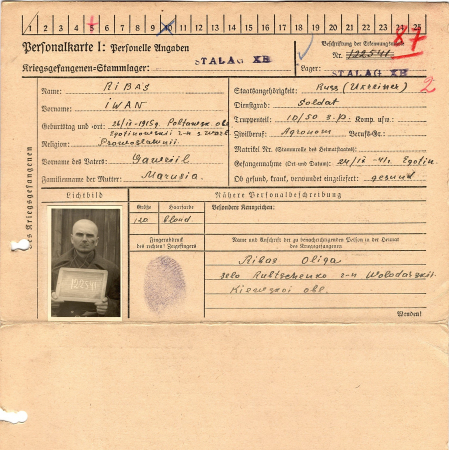 1 2 3 4 5 6 7 8 9 10 11 12 13 14 15 16 17 18 19 20 21 22 23 24 25
Personalkarte I: Personelle Angaben
Kriegsgefangenen-Stammlager: STALAG XB
Beschriftung der Erkennungsmarke
Nr. 122541
87
Lager: STALAG XB
2
Des Kriegsgefangenen
Name: RIBAS
Vorname: IWAN
Geburtstag und -ort: 26/IX-1915g. Poltawsk. obl.
Religion: Prawoslawnii
Vorname des Vaters: Gawriil
Familienname der Mutter: Marusia
Staatsangehörigkeit: Russ (Ukreiner)
Dienstgrad: Soldat
Truppenteil: 10/50 s.p. Komp. usw.:
Zivilberuf: Agronom Berufs-Gr.:
Matrikel Nr. (Stammrolle des Heimatstaates):
Gefangennahme (Ort und Datum): 24/IX-41.
Ob gesund, krank, verwundet eingeliefert: gesund
Lichtbild
122541
Größe
Haarfarbe
blond
Fingerabdruck
des rechten Zeigefingers
Nähere Personalbeschreibung
Besondere Kennzeichen:
Name und Anschrift der zu benachrichtigenden Person in der Heimat
des Kriegsgefangenen
Ribas Oliga
selo Rubtschenko r-n Wolodarskii
Kiewskoi obl.
Wenden!